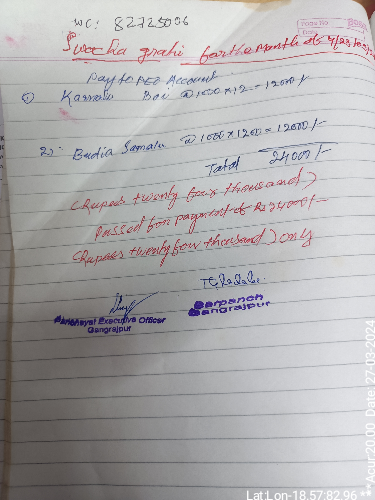 WC: 82725006
Page No
Date
Swocha grahi for the month of
Pay to PEO Account
① Bai @ 1000 x 12 = 12000/-
2) Budia Samalu @ 1000 x 1200 = 12000/-
Total 24000/-
(Rupees twenty four thousand)
Passed for payment of Rs 24000/-
(Rupees twenty four thousand) only
Panchayat Executive Officer
Gangrajpur
Sarpanch
Gangrajpur
Lat Lon-18.57:82.96 *** Acur:20.00, Date: 27-03-2024